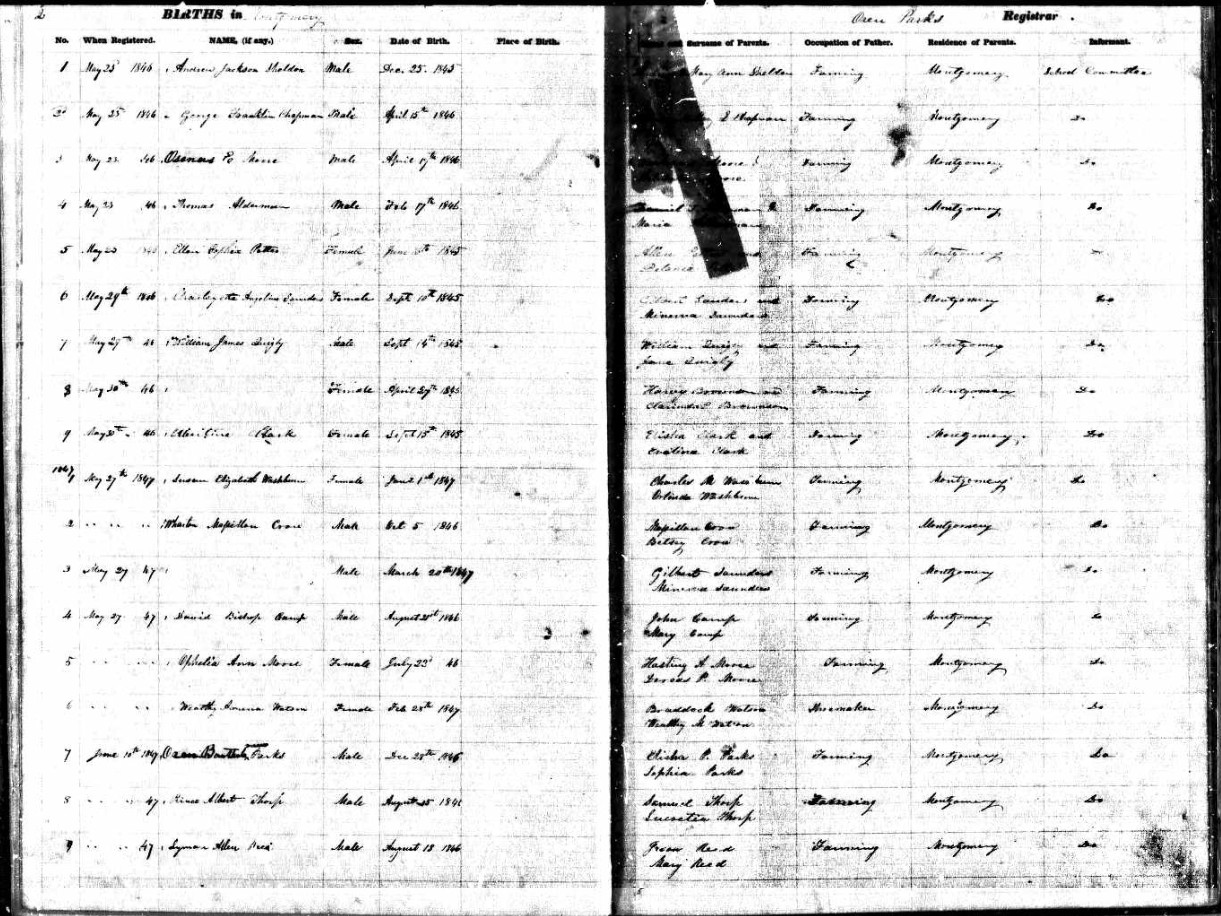 2 BIRTHS in Montgomery Oren Parks Registrar.
No. When Registered. NAME, (if any.) Sex. Date of Birth. Place of Birth. Surname of Parents. Occupation of Father. Residence of Parents. Informant.
1 May 25 1846 Andrew Jackson Sheldon Male Dec. 25. 1845 Mary Ann Sheldon Farming Montgomery School Committee
2 May 25 1846 George Franklin Chapman Male April 15th 1846 Chapman Farming Montgomery Do
3 May 23 46 Moore Male April 17th 1846 Moore & Farming Montgomery Do
4 May 23 46 Thomas Alderman Male Feb 17th 1846 Daniel & Farming Montgomery Do
Maria
5 May Ellen Sophia Female June 1845 Allen Farming Montgomery Do
6 May 29th 1846 Angeline Saunders Female Sept 10th 1845 Saunders and Farming Montgomery Do
Minerva Saunders
7 May 29th 46 William James Quigly Male Sept 14th 1845 William Quigly and Farming Montgomery Do
Jane Quigly
8 May 30th 46 Female April 27th 1845 Harvey Brownson and Farming Montgomery Do
Clarinda Brownson
9 May 30th 46 Clark Female Sept 15th 1845 Elisha Clark and Farming Montgomery Do
Evalina Clark
1847
1 May 27th 1847 Susan Elizabeth Washburn Female 1st 1847 Charles M Washburn Farming Montgomery Do
Orlinda Washburn
2 " " " Wharton Mapillan Crow Male Oct 5 1846 Mapillan Crow Farming Montgomery Do
Betsey Crow
3 May 27 47 Male March 20th 1847 Gilbert Saunders Farming Montgomery Do
Minerva Saunders
4 May 27 47 David Bishop Camp Male August 21st 1846 John Camp Farming Montgomery Do
Mary Camp
5 " " " Ophelia Ann Moore Female July 23d 46 Hasting A Moore Farming Montgomery Do
Dorcas P. Moore
6 " " " Wealthy Watson Female Feb 28th 1847 Braddock Watson Shoemaker Montgomery Do
Wealthy M Watson
7 June 10th 1847 Oren Parks Male Dec 28th 1846 Elisha P. Parks Farming Montgomery Do
Sophia Parks
8 " " 47 Albert Thorp Male August 25 Samuel Thorp Farming Montgomery Do
Lucretia Thorp
9 " " 47 Lyman Allen Male August 18 1846 Reed Farming Montgomery Do
Mary Reed